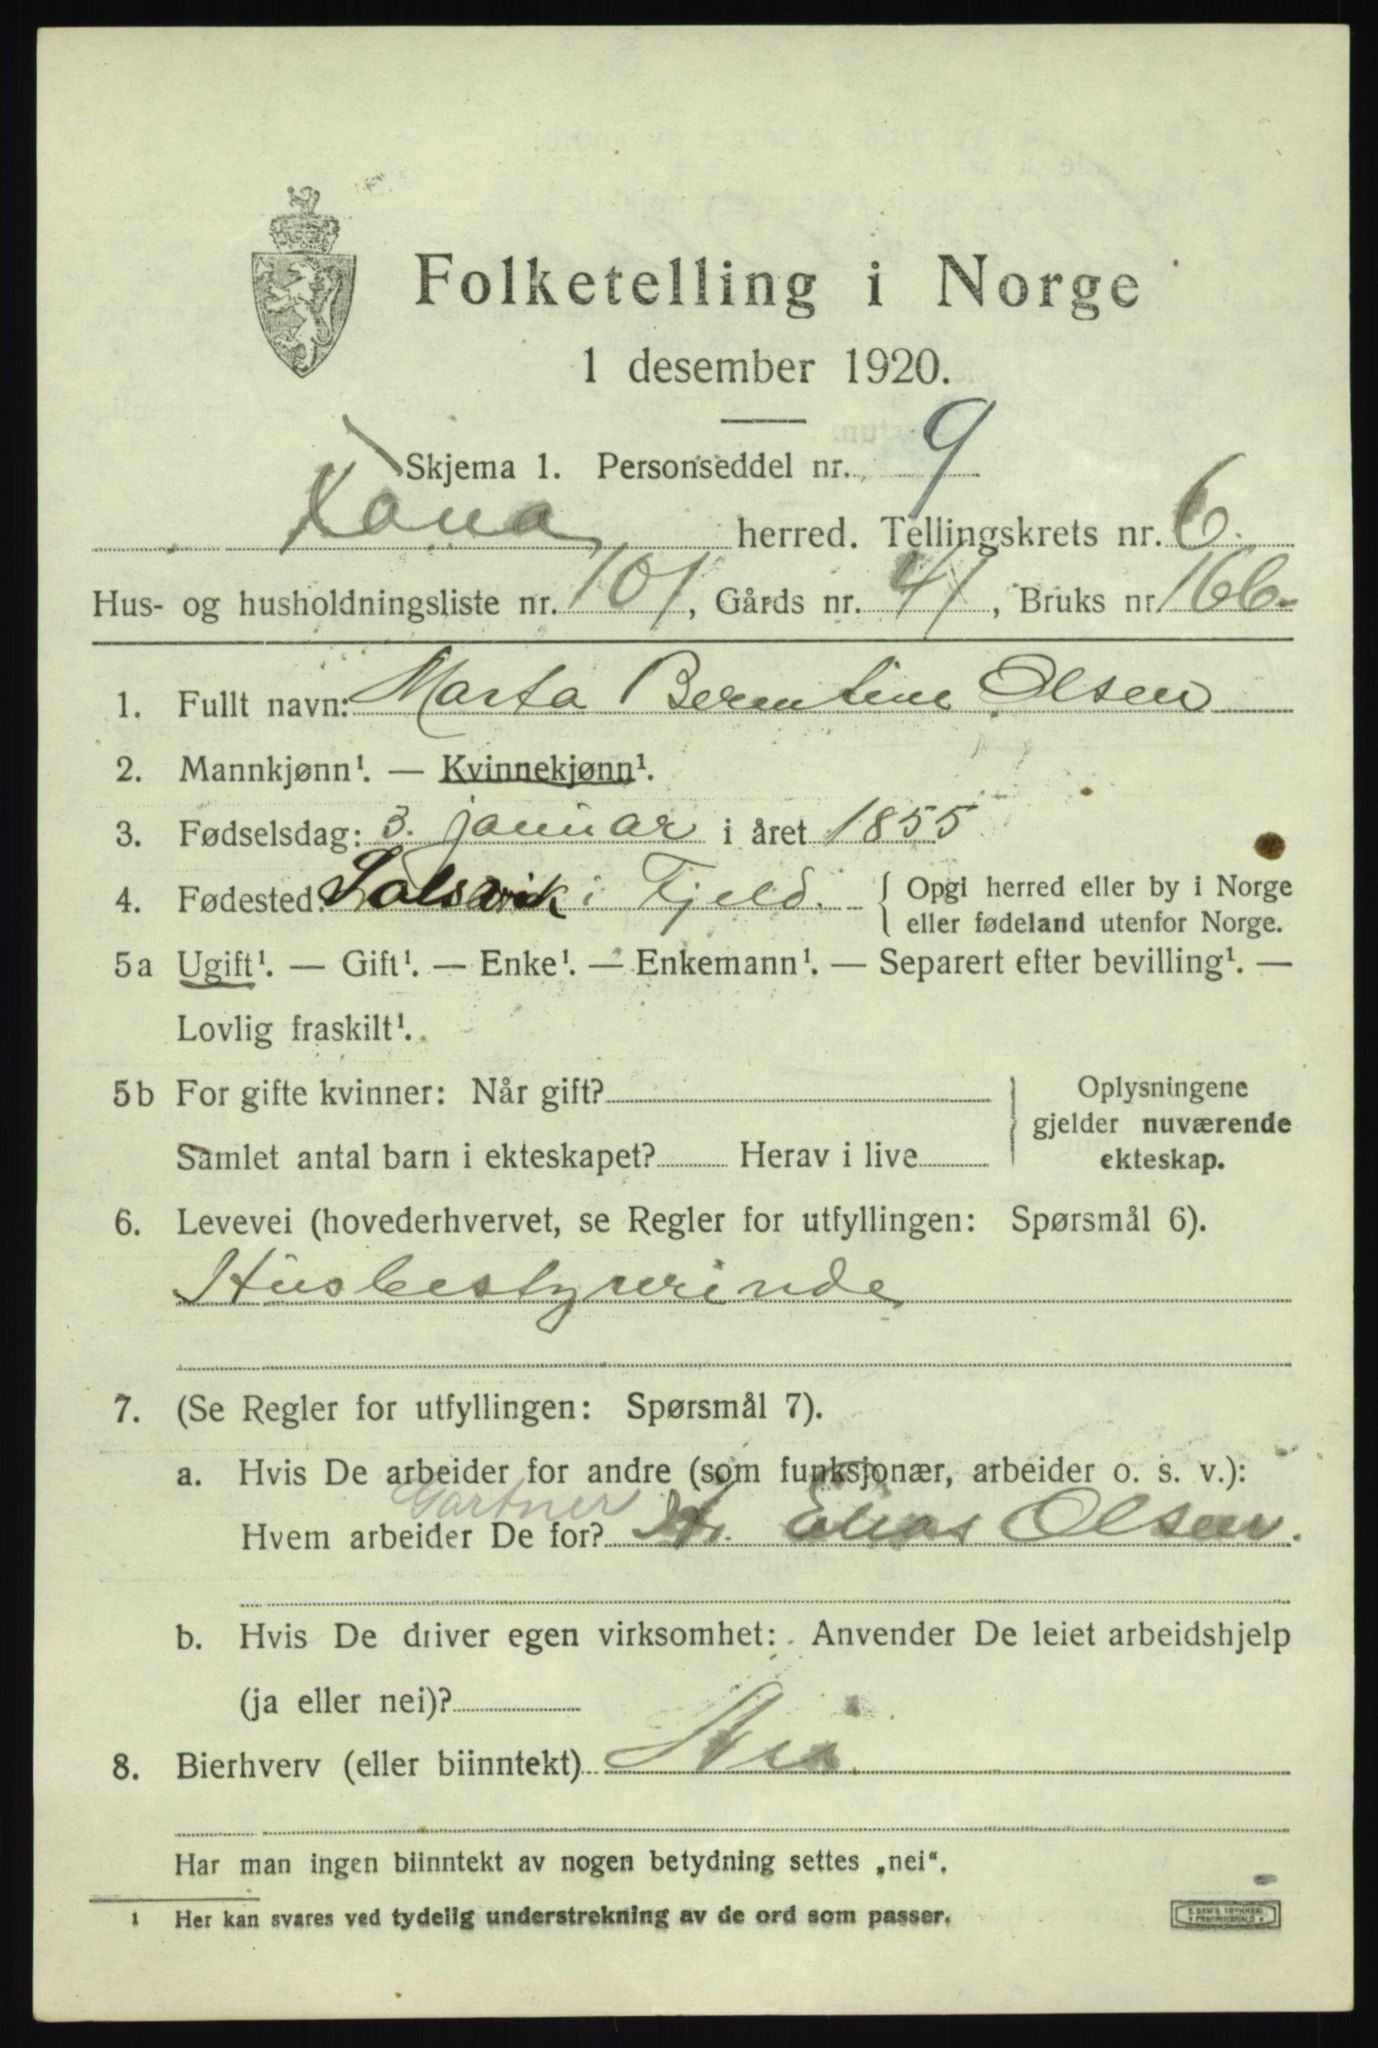 Folketelling i Norge
1 desember 1920.
Skjema 1. Personseddel nr. 9
Fana herred. Tellingskrets nr. 6.
Hus- og husholdningsliste nr. 101, Gårds nr. 41, Bruks nr 166.
1. Fullt navn: Marta Berentine Olsen
2. Mannkjønn¹. — Kvinnekjønn¹.
3. Fødselsdag: 3. januar i året 1855
4. Fødested: Solsvik i Fjeld. { Opgi herred eller by i Norge
eller fødeland utenfor Norge.
5a Ugift¹. — Gift¹. — Enke¹. — Enkemann¹. — Separert efter bevilling¹. —
Lovlig fraskilt¹.
5b For gifte kvinner: Når gift?
Samlet antal barn i ekteskapet? Herav i live
Oplysningene
gjelder nuværende
ekteskap.
6. Levevei (hovederhvervet, se Regler for utfyllingen: Spørsmål 6).
Husbestyrerinde
7. (Se Regler for utfyllingen: Spørsmål 7).
a. Hvis De arbeider for andre (som funksjonær, arbeider o. s. v.):
Gartner
Hvem arbeider De for? Hr. Elias Olsen.
b. Hvis De driver egen virksomhet: Anvender De leiet arbeidshjelp
(ja eller nei)?
8. Bierhverv (eller biinntekt) Nei.
Har man ingen biinntekt av nogen betydning settes „nei“.
1 Her kan svares ved tydelig understrekning av de ord som passer.